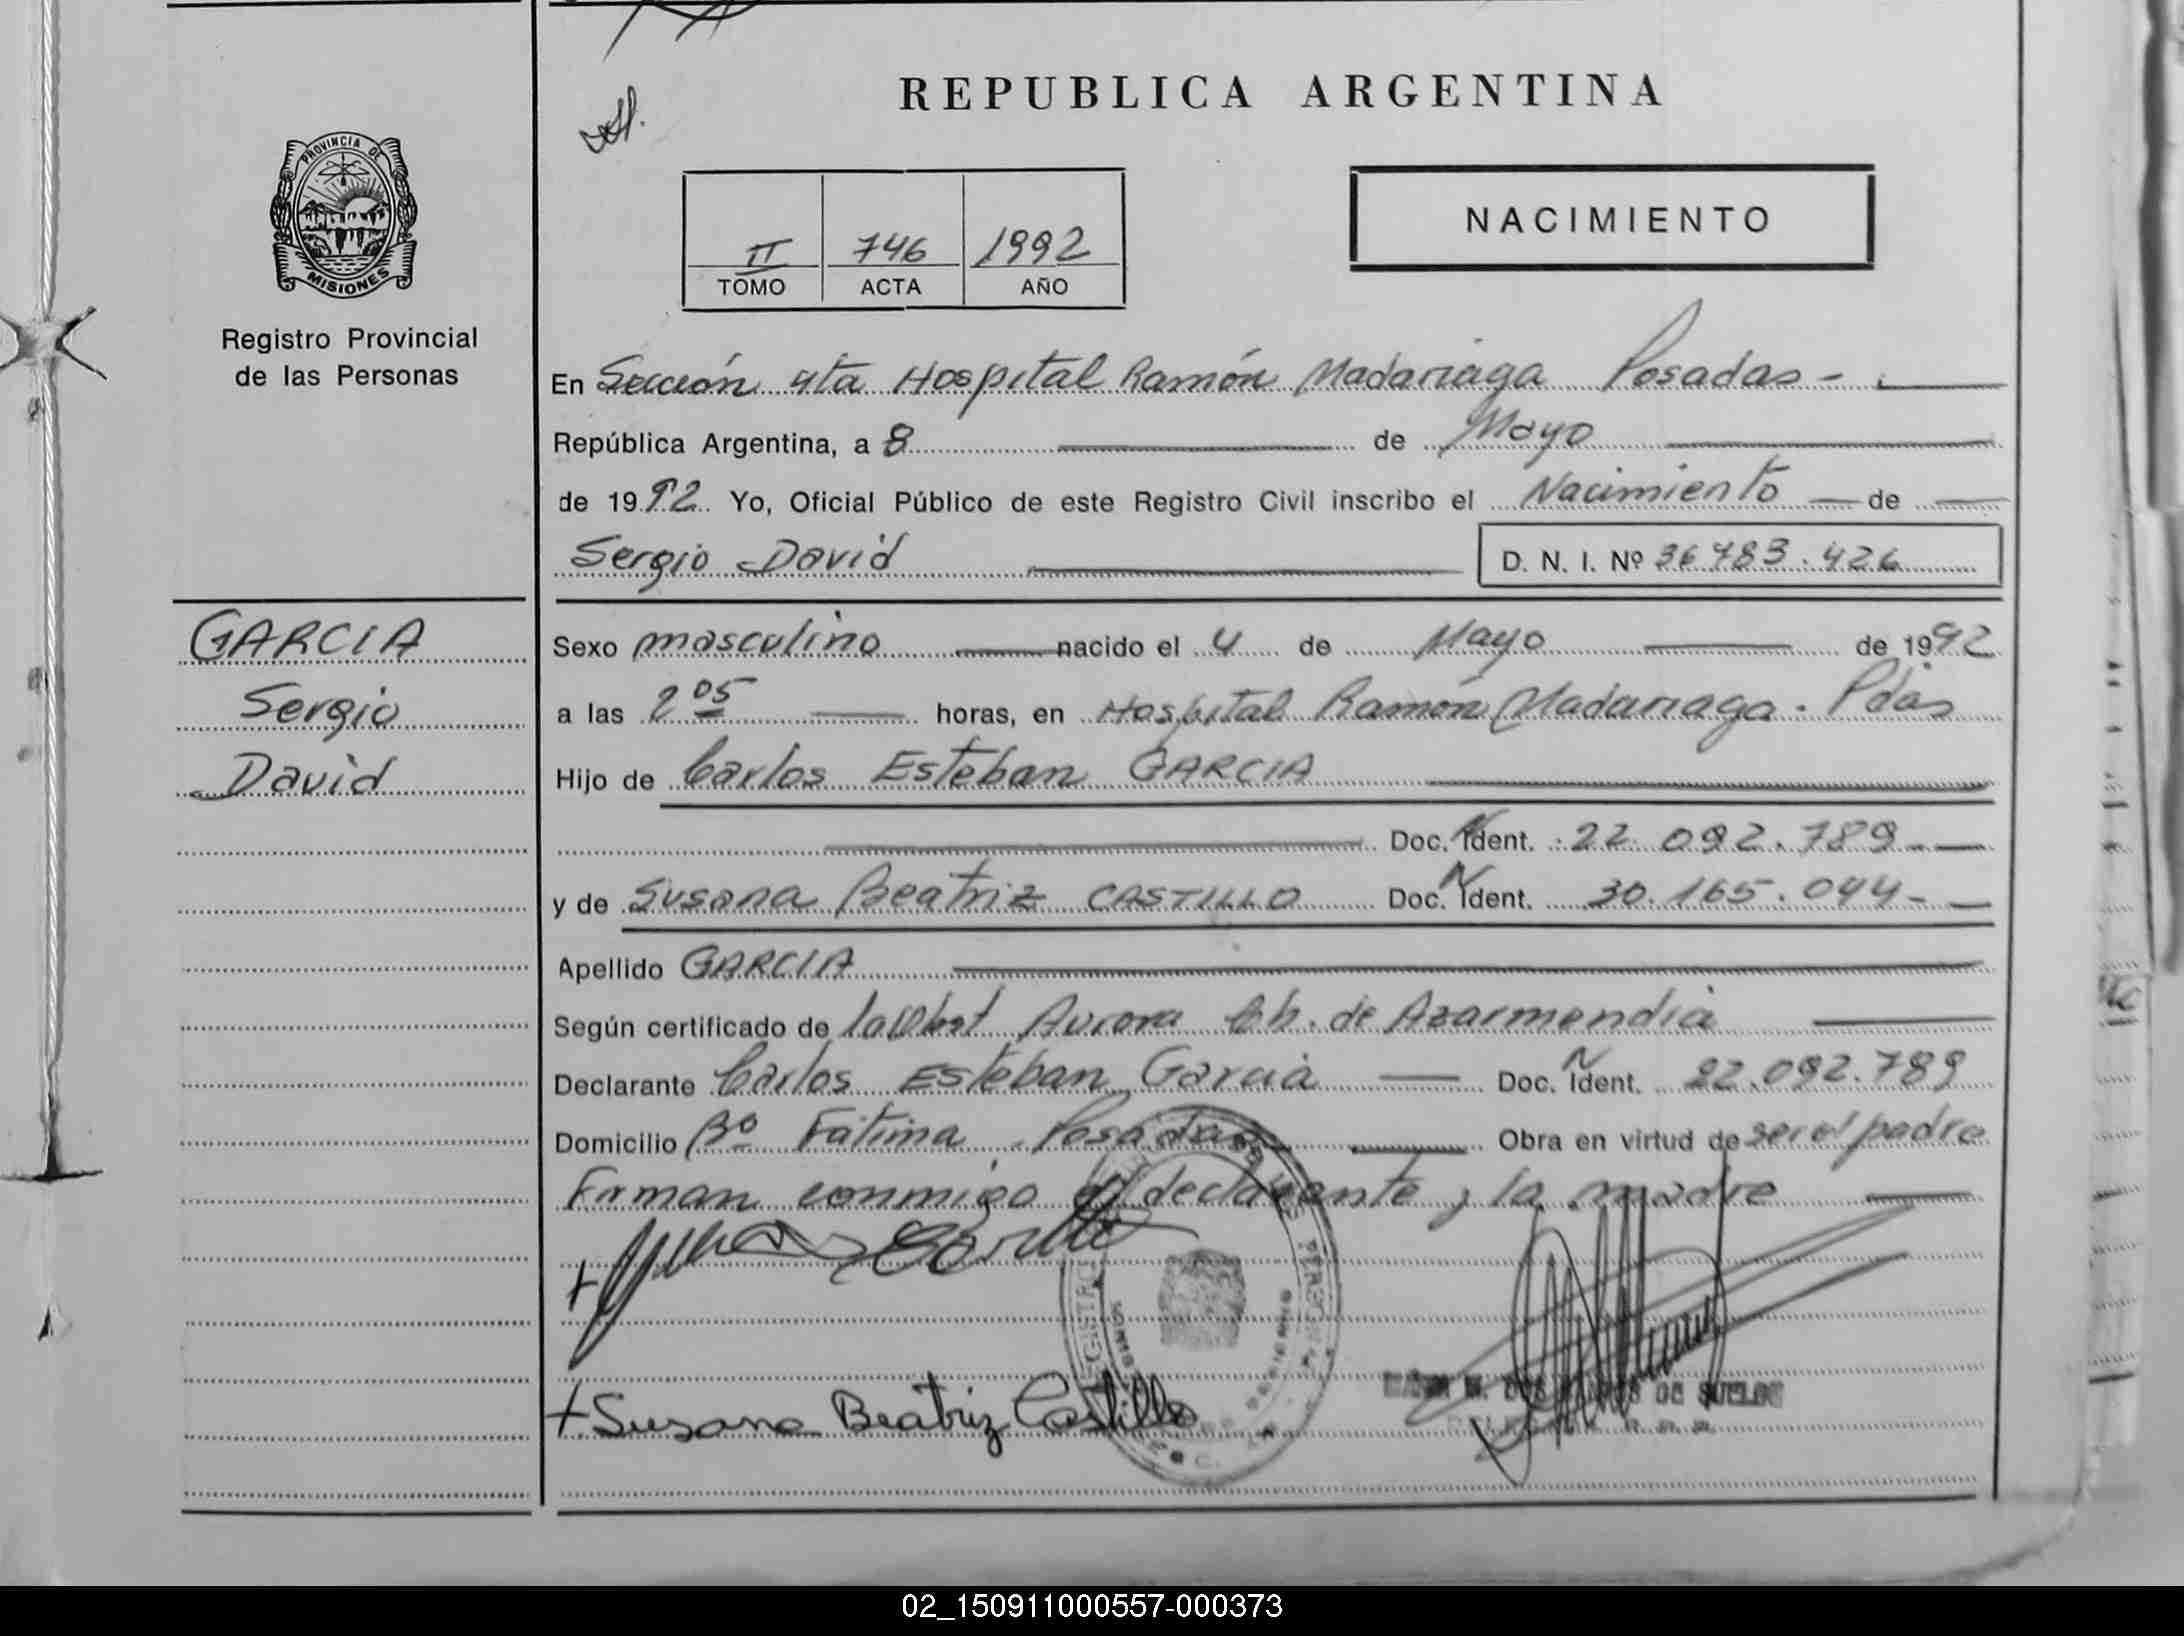 REPUBLICA ARGENTINA
PROVINCIA DE
MISIONES
Registro Provincial
de las Personas
II 746 1992
TOMO ACTA AÑO
NACIMIENTO
En Sección 4ta Hospital Ramón Madariaga Posadas -
República Argentina, a 8 de Mayo
de 1992 Yo, Oficial Público de este Registro Civil inscribo el Nacimiento de
Sergio David D. N. I. Nº 36.783.426
GARCIA
Sergio
David
Sexo masculino nacido el 4 de Mayo de 1992
a las 2 05 horas, en Hospital Ramón Madariaga. Pdas
Hijo de Carlos Esteban GARCIA
Doc. Ident. 22.092.789-
y de Susana Beatriz CASTILLO Doc. Ident. 30.165.044-
Apellido GARCIA
Según certificado de Aurora Ch. de Azarmendia
Declarante Carlos Esteban Garcia Doc. Ident. 22.092.789
Domicilio Bº Fátima Posadas Obra en virtud de ser el padre
Firman conmigo el declarante y la madre
+
+ Susana Beatriz Castillo
DE SUELOS
02_150911000557-000373